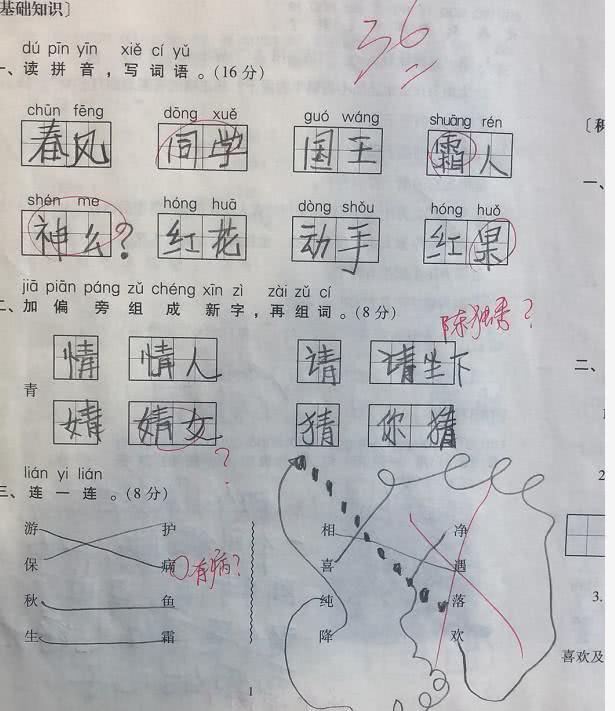 基础知识〕
36
dú pīn yīn xiě cí yǔ
一、读拼音，写词语。(16分)
chūn fēng dōng xuě guó wáng shuāng rén
春风 同学 国王 霜人
〔积
一、
shén me hóng huā dòng shǒu hóng huǒ
神么? 红花 动手 红果
jiā piān páng zǔ chéng xīn zì zài zǔ cí
二、加偏旁组成新字，再组词。(8分)
陈独秀?
情 情人 请 请坐下
青
婧 婧女 猜 你猜
?
二、
lián yi lián
三、连一连。(8分)
2
游 护 相 净
保 病 有病? 喜 遇
秋 鱼 纯 落
3.
生 霜 降 欢
喜欢及
1